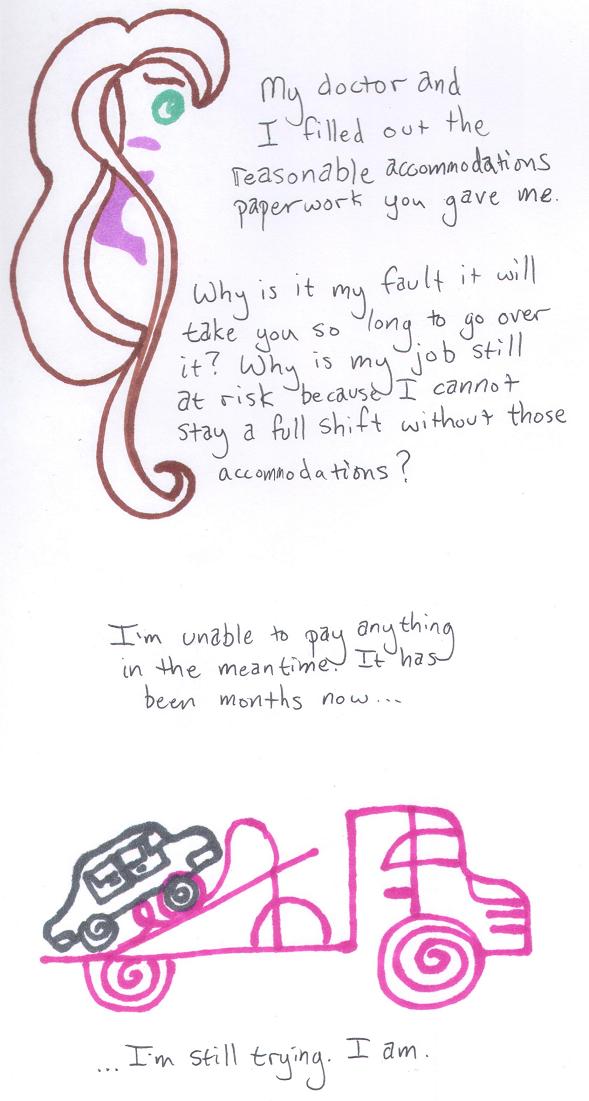 My doctor and
I filled out the
reasonable accommodations
paperwork you gave me.
Why is it my fault it will
take you so long to go over
it? Why is my job still
at risk because I cannot
stay a full shift without those
accommodations?
I'm unable to pay anything
in the meantime. It has
been months now...
...I'm still trying. I am.